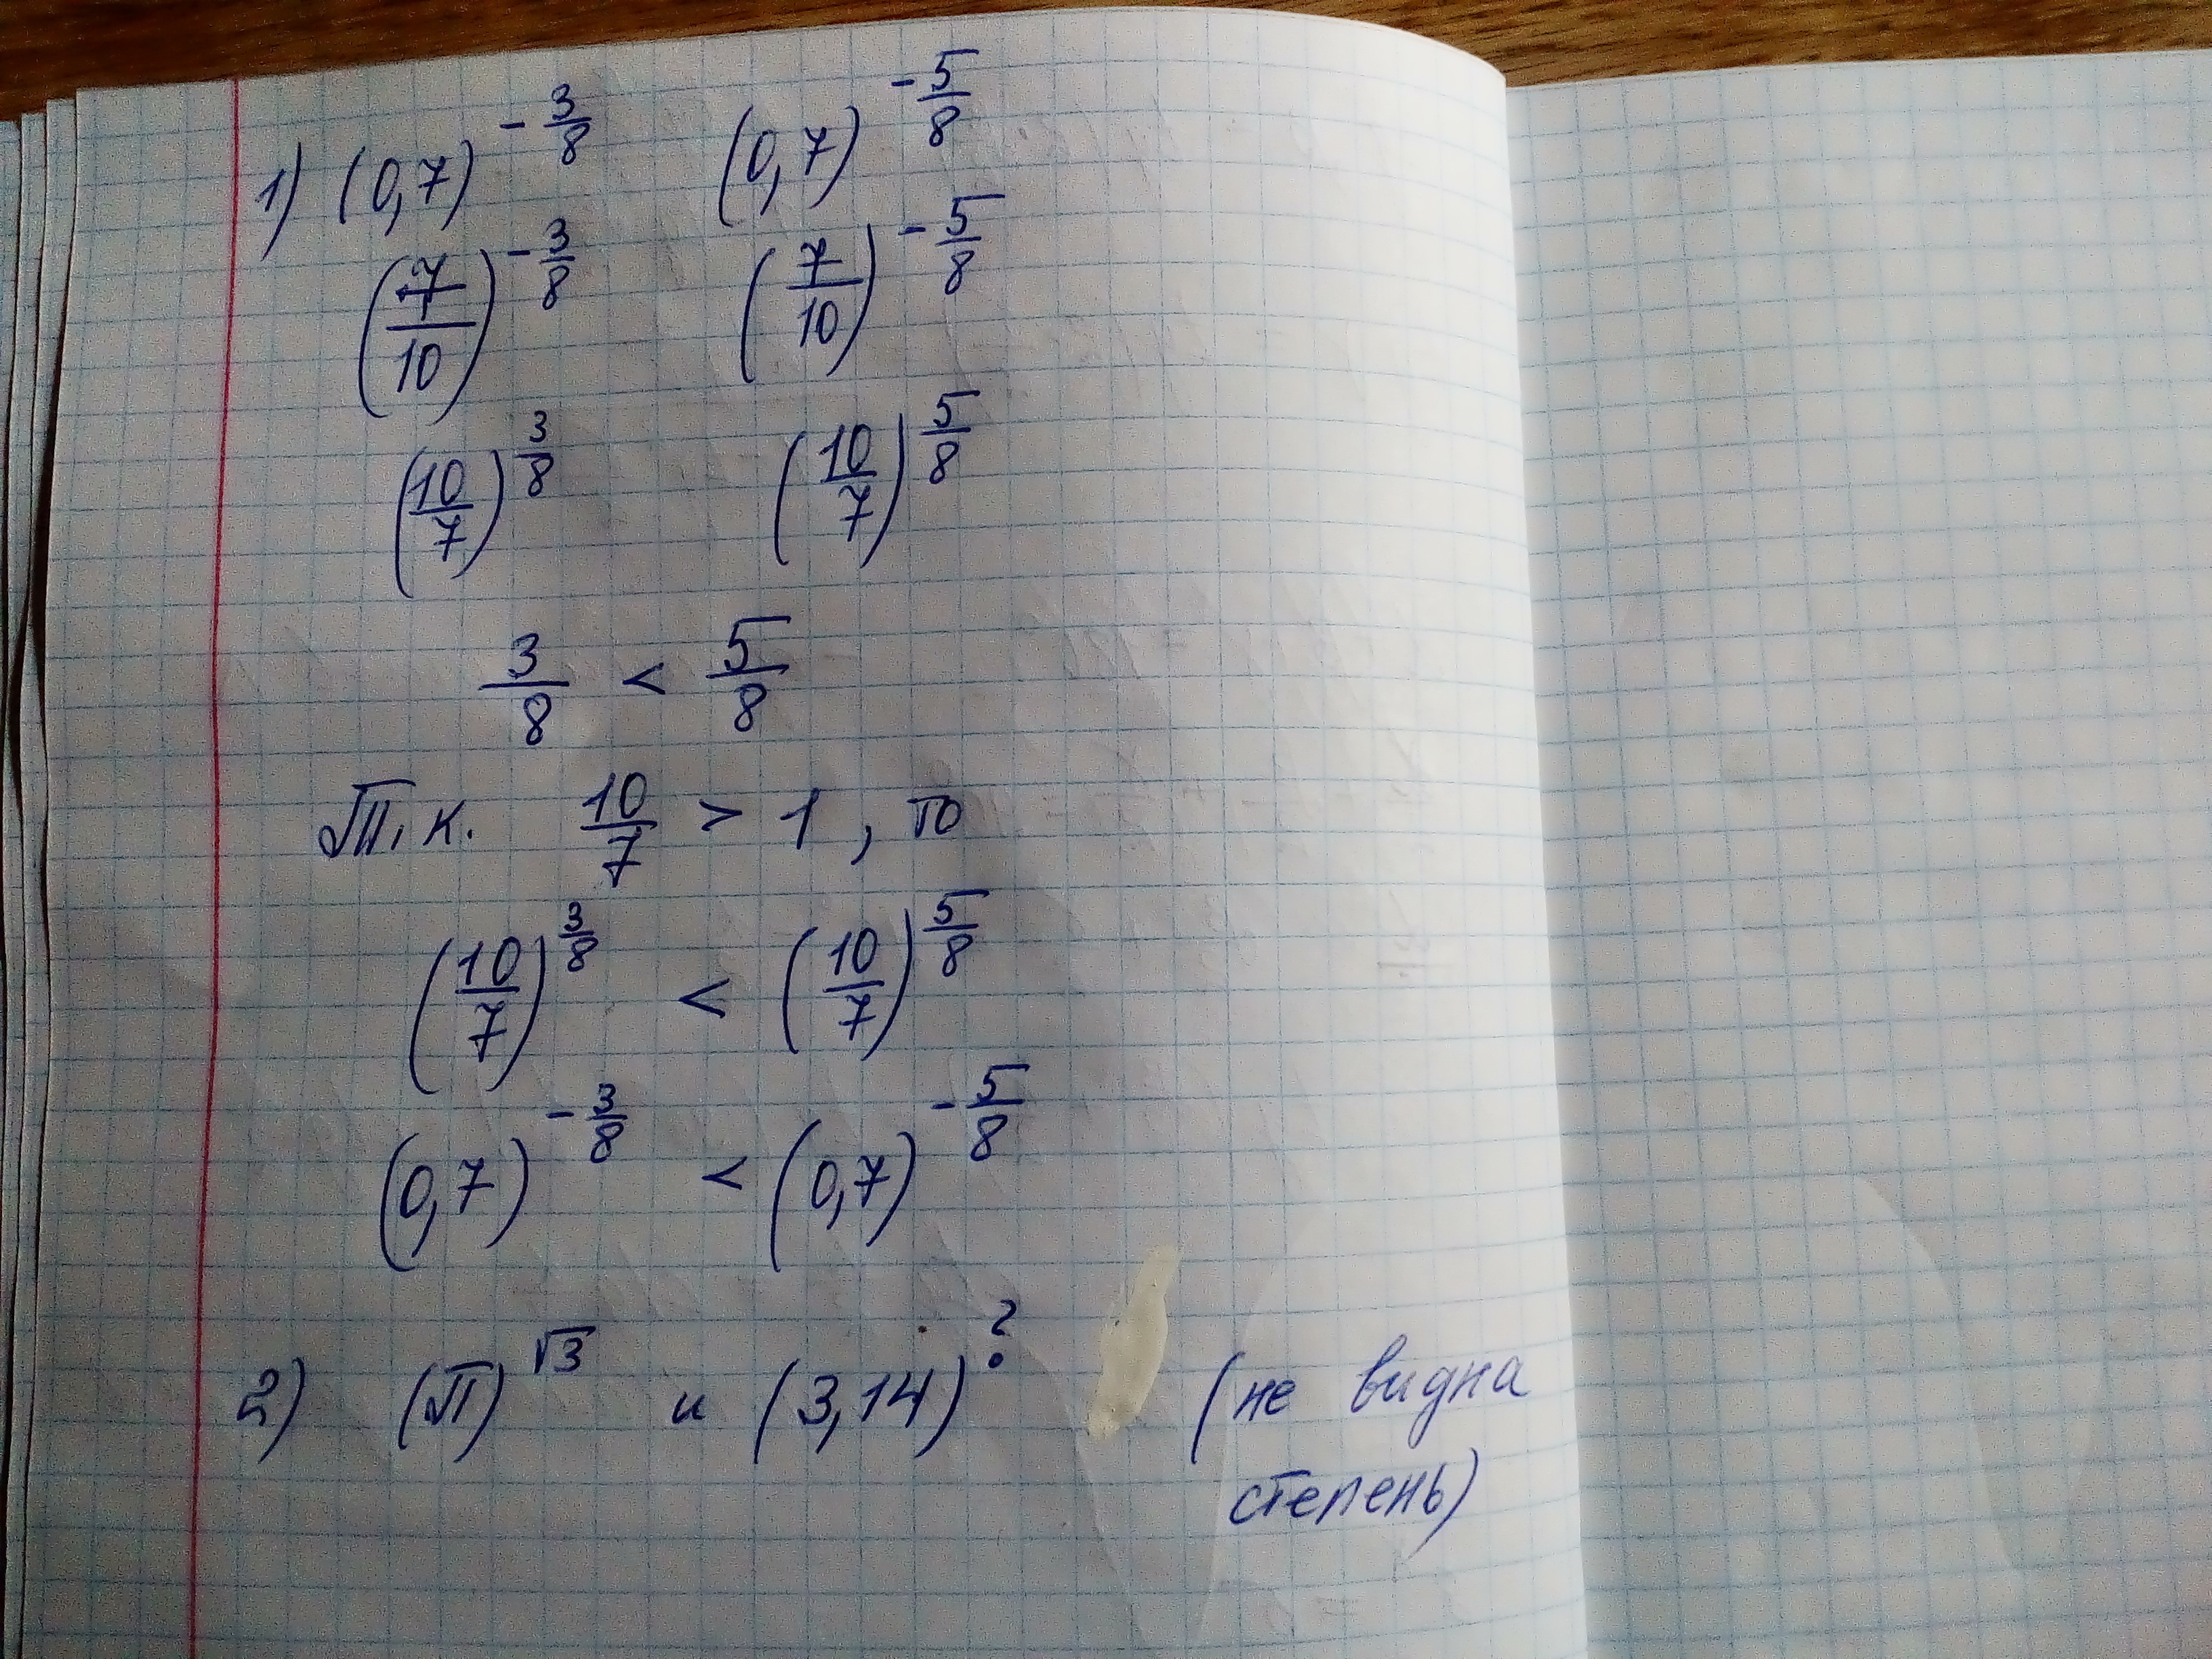 1) (0,7)^{-\frac{3}{8}} (0,7)^{-\frac{5}{8}}
(\frac{7}{10})^{-\frac{3}{8}} (\frac{7}{10})^{-\frac{5}{8}}
(\frac{10}{7})^{\frac{3}{8}} (\frac{10}{7})^{\frac{5}{8}}
\frac{3}{8} < \frac{5}{8}
Т.к. \frac{10}{7} > 1, то
(\frac{10}{7})^{\frac{3}{8}} < (\frac{10}{7})^{\frac{5}{8}}
(0,7)^{-\frac{3}{8}} < (0,7)^{-\frac{5}{8}}
2) (π)^{\sqrt{3}} и (3,14)^{?} (не видна
степень)